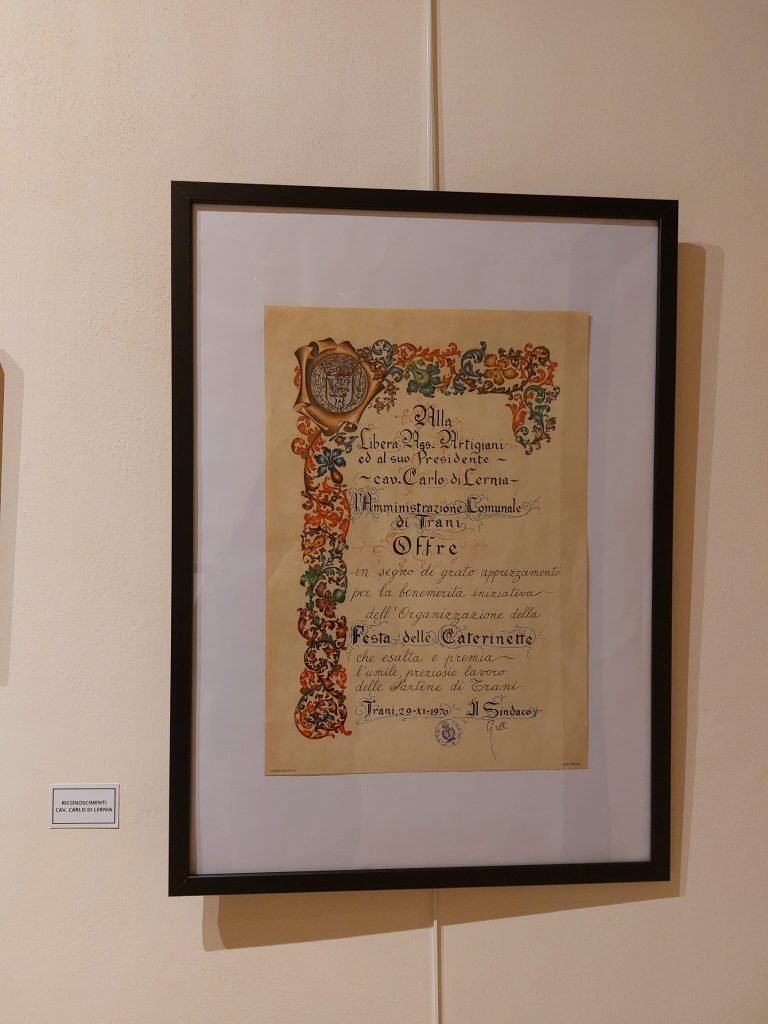 Alla
Libera Ass. Artigiani
ed al suo Presidente ~
~ cav. Carlo di Lernia ~
l'Amministrazione Comunale
di Trani
Offre
in segno di grato apprezzamento
per la benemerita iniziativa
dell'Organizzazione della
Festa delle Caterinette
che esalta e premia
l'umile, preziosio lavoro
delle Sartine di Trani
Trani, 29-XI-1970 Il Sindaco
RICONOSCIMENTI
CAV. CARLO DI LERNIA